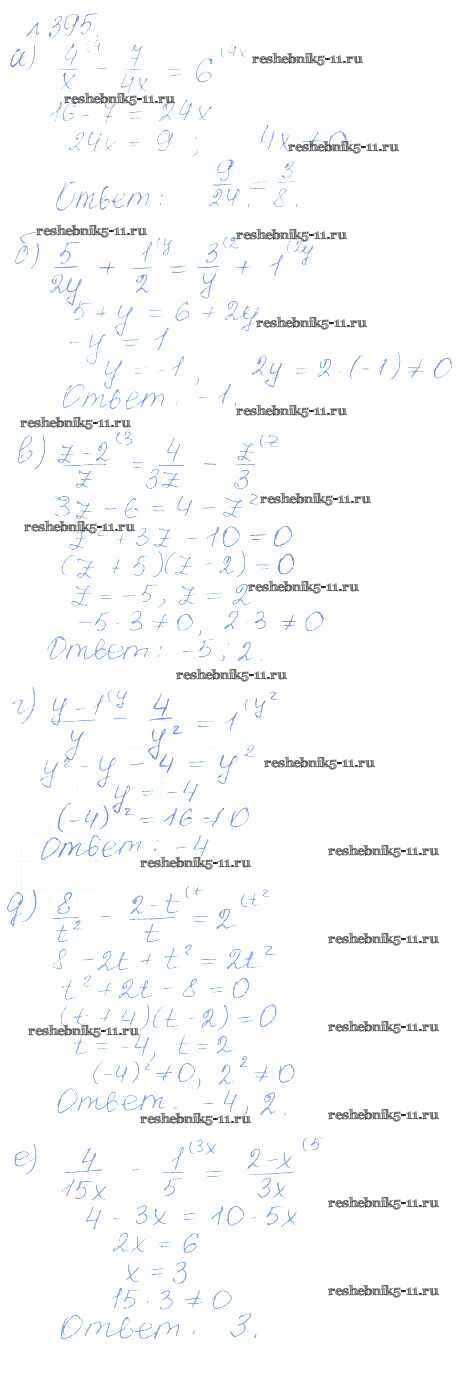 №395.
а) 4/x (4 - 7/4x = 6 (4x reshebnik5-11.ru
reshebnik5-11.ru
16 - 7 = 24x
24x = 9 ; 4x ≠ 0 reshebnik5-11.ru
Ответ: 9/24 = 3/8.
reshebnik5-11.ru reshebnik5-11.ru
б) 5/2y + 1/2 (y = 3/y (2 + 1 (2y
5 + y = 6 + 2y reshebnik5-11.ru
-y = 1
y = -1, 2y = 2·(-1) ≠ 0
Ответ: -1. reshebnik5-11.ru
reshebnik5-11.ru
в) z-2/z (3 = 4/3z - z/3 (z
3z - 6 = 4 - z² reshebnik5-11.ru
reshebnik5-11.ru
z² + 3z - 10 = 0
(z + 5)(z - 2) = 0
z = -5, z = 2 reshebnik5-11.ru
-5·3 ≠ 0, 2·3 ≠ 0
Ответ: -5; 2.
reshebnik5-11.ru
г) y-1/y (y - 4/y² = 1 (y²
y² - y - 4 = y² reshebnik5-11.ru
y = -4
(-4)² = 16 ≠ 0
Ответ: -4 reshebnik5-11.ru
reshebnik5-11.ru
д) 8/t² - 2-t/t (t = 2 (t²
reshebnik5-11.ru
8 - 2t + t² = 2t²
t² + 2t - 8 = 0
(t + 4)(t - 2) = 0 reshebnik5-11.ru
reshebnik5-11.ru
t = -4, t = 2
(-4)² ≠ 0, 2² ≠ 0
Ответ. -4, 2. reshebnik5-11.ru
reshebnik5-11.ru
е) 4/15x - 1/5 (3x = 2-x/3x (5
reshebnik5-11.ru
4 - 3x = 10 - 5x
2x = 6
x = 3
15·3 ≠ 0 reshebnik5-11.ru
Ответ. 3.